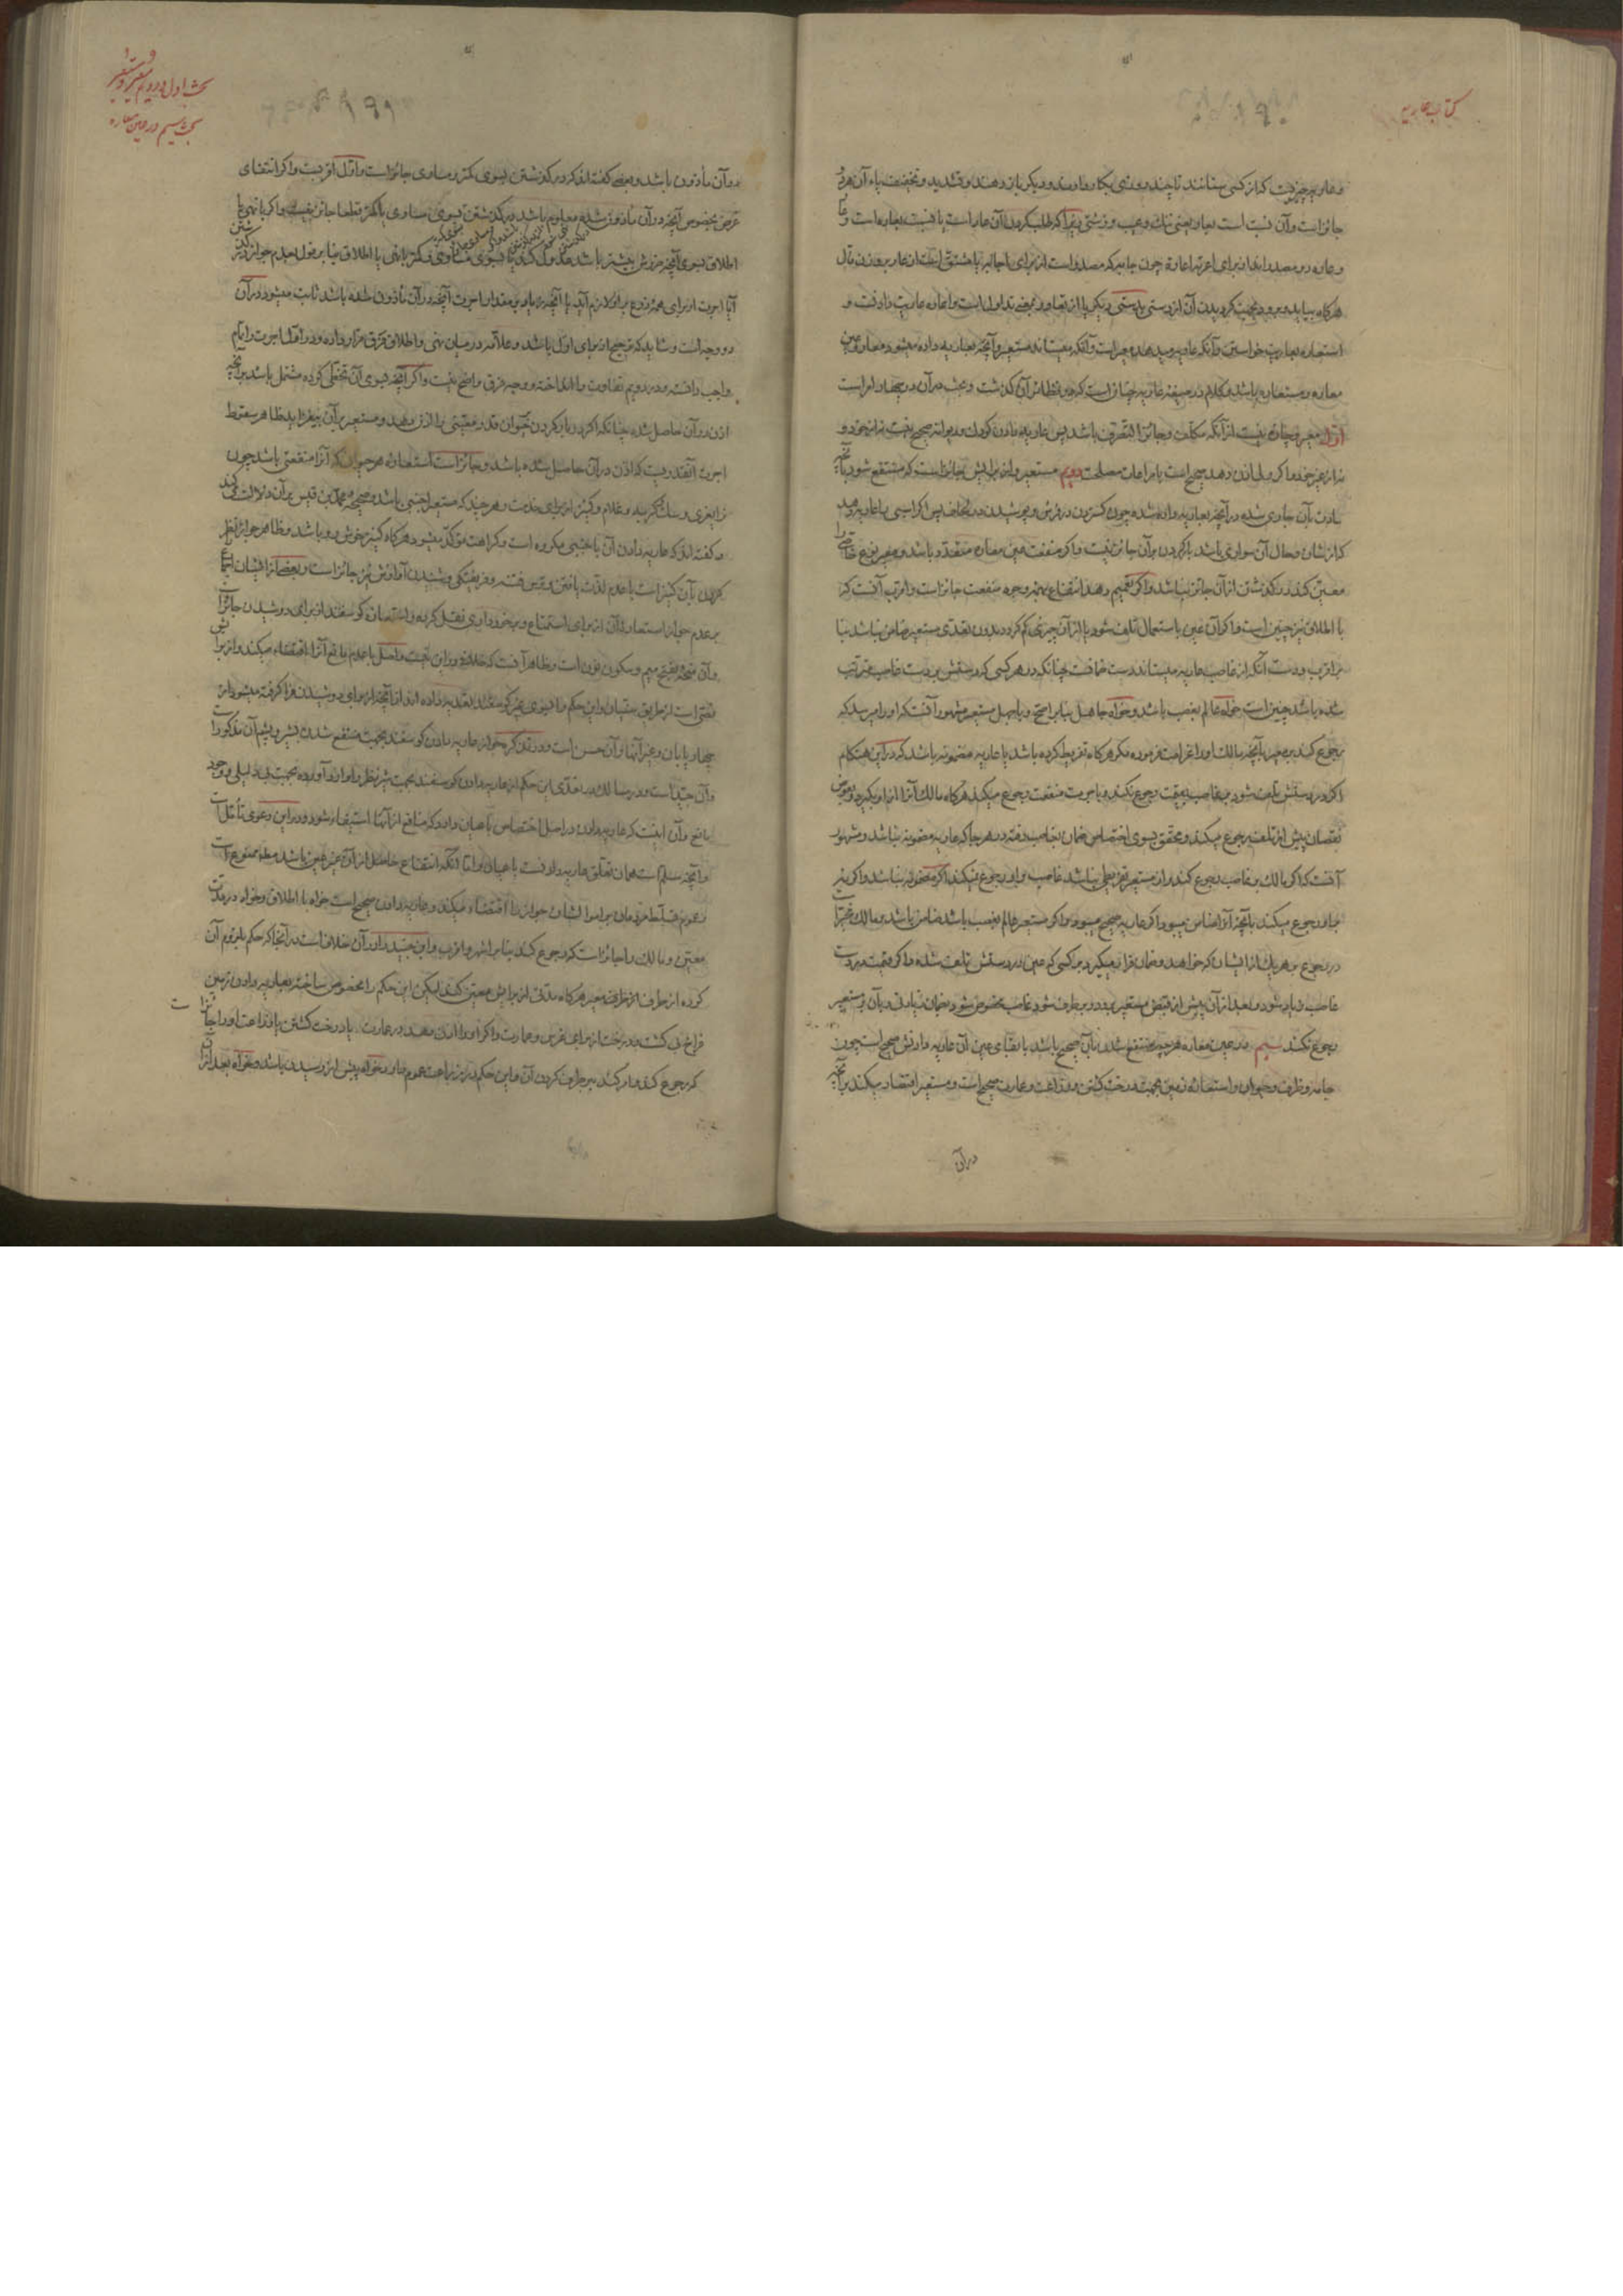 کتاب عاریه
و عاریه چیزیست که از کسی بستانند تا چند روزی بکار دارند و دیگر باز دهند و تشدید و تخفیف یاء آن هر دو
جائز است و آن نسبت است بعار یعنی ننک و عیب و زشتی زیرا که طلب کردن آن عار است یا نسبت بعاره است و
و عاره دو مصدر اند از برای اعرته اعارة چون جابه که مصدر است از برای اجاب یا مشتق است از عار بر وزن مال
هر کاه بیاید و برود بجهت کردیدن آن از دستی بدستی دیکر یا از تعاور بمعنی تداول است و اعاره عاریت دادنست و
استعاره بعاریت خواستن و آنکه عاریه میدهد معیر است و آنکه میستاند مستعیر و آنچه بعاریه داده میشود معار و عین
معاره و مستعاره باشد و کلام در صیغه عاریه چنانست که در نظائر آن کذشت و بحث در آن در چهار امر است
اول معیر و چاره نیست از آنکه مکلف و جائز التصرف باشد پس عاریه دادن کودک و دیوانه صحیح نیست نه از خود و
نه از غیر خود و اکر ولی اذن دهد صحیح است با مراعات مصلحت دویم مستعیر و از برایش جائز است که منتفع شود بآنچه
عادت بآن جاری شده در آنچه بعاریه داده شده چون کستردن در فرش و پوشیدن در لحاف پس اکر اسبی را عاریه دهد
که از شان و حال آن سواری باشد بار کردن بر آن جائز نیست و اکر منفعت عین معاره متعدد باشد و معیر نوع خاصی را
معین کند در کذشتن از آن جائز نباشد و اکر تعمیم دهد انتفاع بهمه وجوه منفعت جائز است و اقرب آنست که
با اطلاق نیز چنین است و اکر آن عین باستعمال تلف شود یا از آن چیزی کم کردد بدون تعدی مستعیر ضامن نباشد بنا
بر اقرب و دست آنکه از غاصب عاریه میستاند دست ضمانست چنانکه در هر کسی که دستش بر دست غاصب مترتب
شده باشد چنین است خواه عالم بغصب باشد و خواه جاهل بنا بر اصح و با جهل مستعیر مشهور آنست که او را میرسد که
رجوع کند بر معیر بآنچه مالک او را غرامت فرموده مکر هر کاه تفریط کرده باشد یا عاریه مضمونه باشد که در این هنکام
اکر در دستش تلف شود بر غاصب بقیمت رجوع نکند و باجرت منفعت رجوع میکند هر کاه مالک آنرا از او بکیرد و بعوض
نقصان پیش از تلف رجوع میکند و محقق بسوی اختصاص ضمان بغاصب رفته در هر جا که عاریه مضمونه نباشد و مشهور
آنست که اکر مالک بر غاصب رجوع کند و از مستعیر تفریطی نباشد غاصب بر او رجوع نمیکند اکر مضمونه نباشد و اکر نه
بر او رجوع میکند بآنچه آنرا ضامن میبود اکر عاریه صحیح میبود و اکر مستعیر عالم بغصب باشد ضامن باشد و مالک مخیر است
در رجوع بر هر یک از ایشان که خواهد و ضمان قرار میکیرد بر کسی که عین در دستش تلف شده و اکر قیمت در دست
غاصب زیاد شود و بعد از آن پیش از قبض مستعیر بر طرف شود غاصب مخصوص شود بضمان زیادتی و بآن بر مستعیر
رجوع نکند سیم در عین معاره هر چه منتفع شدن بآن صحیح باشد با بقای عین آن عاریه دادنش صحیح است چون
جامه و ظرف و حیوان و استعاره زمین بجهت درخت کشتن و زراعت و عمارت صحیح است و مستعیر اقتصار میکند بر آنچه
در آن
بحث اول و دویم معیر و مستعیر
بحث سیم در عین معاره
در آن مأذون باشد و بعضی کفته اند که در کذشتن بسوی کمتر و مساوی جائز است و اول اقربست و اکر انتفای
غرض بخصوص آنچه در آن مأذون شده معلوم باشد در کذشتن بسوی مساوی یا کمتر قطعا جائز نیست و اکر با نهی یا
اطلاق بسوی آنچه ضررش بیشتر باشد عدول کند یا بسوی مساوی و کمتر با نهی یا اطلاق بنا بر قول بعدم جواز در کذشتن
آیا اجرت از برای همه زرع بر او لازم آید یا آنچه زیاد بر مقدار اجرت آنچه در آن مأذون شده باشد ثابت میشود در آن
دو وجه است و شاید که ترجیح از برای اول باشد و علامه در میان نهی و اطلاق فرق قرار داده و در اول اجرت را تمام
واجب دانسته و در دویم تفاوت را انداخته و وجه فرق واضح نیست و اکر آنچه بسوی آن تخطی کرده مشتمل باشد بر آنچه
اذن در آن حاصل شده چنانکه اکر در بار کردن حیوان قدر معینی را اذن دهد و مستعیر بر آن بیفزاید ظاهر سقوط
اجرت آنقدریست که اذن در آن حاصل شده باشد و جائز است استعاره هر حیوان که آنرا منفعتی باشد چون
نرایغری و سک شکاری و غلام و کنیز از برای خدمت و هر چند که مستعیر اجنبی باشد و صحیحه محمد بن قیس بر آن دلالت میکند
و کفته اند که عاریه دادن آن باجنبی مکروه است و کراهت مؤکد میشود هر کاه کنیز خوش رو باشد و ظاهر جواز نظر
کردن بآن کنیز است با عدم لذت یافتن و ترس فتنه و فریفتکی و شنیدن آوازش نیز جائز است و بعضی از ایشان اجماع را
بر عدم جواز استعاره آن از برای استمتاع و برخورداری نقل کرده و استعاره کوسفند از برای دوشیدن جائز است
و آن منحة بفتح میم و سکون نون است و ظاهر آنست که خلافی در این نیست و اصل با عدم مانع آنرا اقتضاء میکند و از برایش
نصی است از طریق سنیان و این حکم را بسوی غیر کوسفند تعدیه داده اند از آنچه از برای دوشیدن فرا کرفته میشود از
چهار پایان و غیر آنها و آن حسن است و در تذکره جواز عاریه دادن کوسفند بجهت منتفع شدن بشیر و پشم آن مذکور است
و آن جید است و در مسالک در تعدی این حکم از عاریه دادن کوسفند بجهت شیر نظر را وارد آورده بجهت نبودن دلیلی و وجود
مانع و آن اینست که عاریه دادن در اصل اختصاص باعیان دارد که منافع از آنها استیفاء شود و در این دعوی تأمل است
و آنچه مسلم است همان تعلق عاریه دادنست باعیان و اما آنکه انتفاع حاصل از آن غیر عین باشد مطلقا ممنوع است
و عموم تسلط مردمان بر اموالشان جواز را اقتضاء میکند و عاریه دادن صحیح است خواه با اطلاق و خواه در مدت
معین و مالک را جائز است که رجوع کند بنا بر اشهر و اقرب و ابن جنید را در آن خلاف است در آنجا که حکم بلزوم آن
کرده از طرف معیر هر کاه مدتی از برایش معین کند لیکن این حکم را مخصوص ساخته بعاریه دادن زمین
فراخ بی کشت و درخت از برای غرس و عمارت و اکر او را اذن دهد در عمارت یا درخت کشتن یا زراعت او را جائز است
که رجوع کند و امر کند ببر طرف کردن آن و این حکم در زراعت عموم دارد خواه پیش از رسیدن باشد و خواه بعد از آن